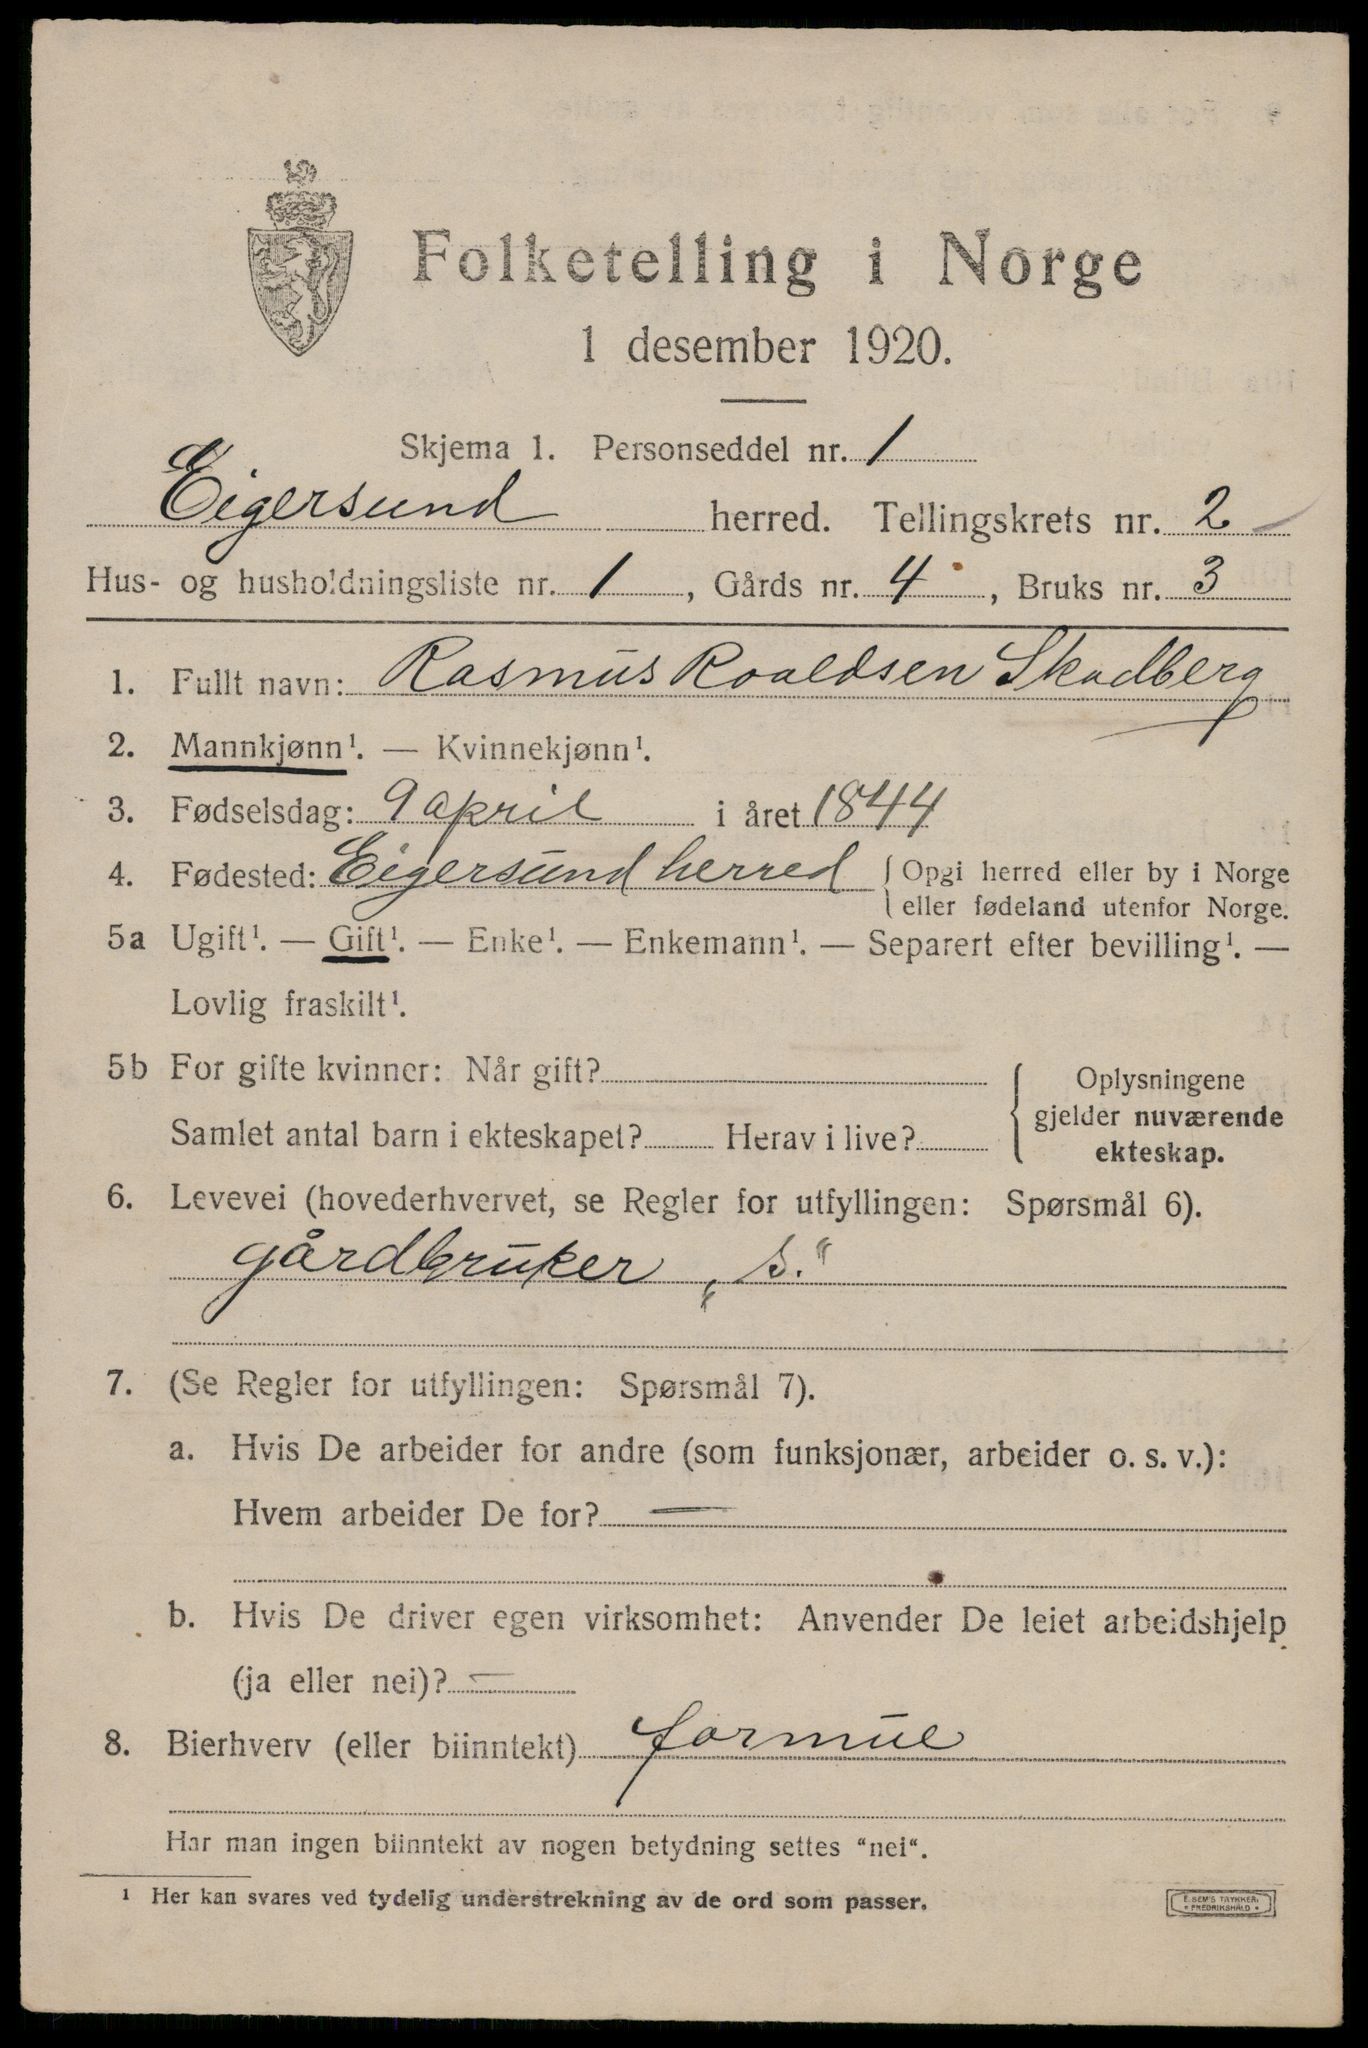 Folketelling i Norge
1 desember 1920.
Skjema 1. Personseddel nr. 1
Eigersund herred. Tellingskrets nr. 2
Hus- og husholdningsliste nr. 1, Gårds nr. 4, Bruks nr. 3
1. Fullt navn: Rasmus Roaldsen Skadberg
2. Mannkjønn¹. — Kvinnekjønn¹.
3. Fødselsdag: 9 april i året 1844
4. Fødested: Eigersund herred { Opgi herred eller by i Norge
eller fødeland utenfor Norge.
5a Ugift¹. — Gift¹. — Enke¹. — Enkemann¹. — Separert efter bevilling¹. —
Lovlig fraskilt¹.
5b For gifte kvinner: Når gift?
Samlet antal barn i ekteskapet? Herav i live?
{ Oplysningene
gjelder nuværende
ekteskap.
6. Levevei (hovederhvervet, se Regler for utfyllingen: Spørsmål 6).
gårdbruker „s.“
7. (Se Regler for utfyllingen: Spørsmål 7).
a. Hvis De arbeider for andre (som funksjonær, arbeider o. s. v.):
Hvem arbeider De for? —
b. Hvis De driver egen virksomhet: Anvender De leiet arbeidshjelp
(ja eller nei)? —
8. Bierhverv (eller biinntekt) formue
Har man ingen biinntekt av nogen betydning settes "nei".
¹ Her kan svares ved tydelig understrekning av de ord som passer.
E. SEM'S TRYKKERI
• FREDRIKSHALD •